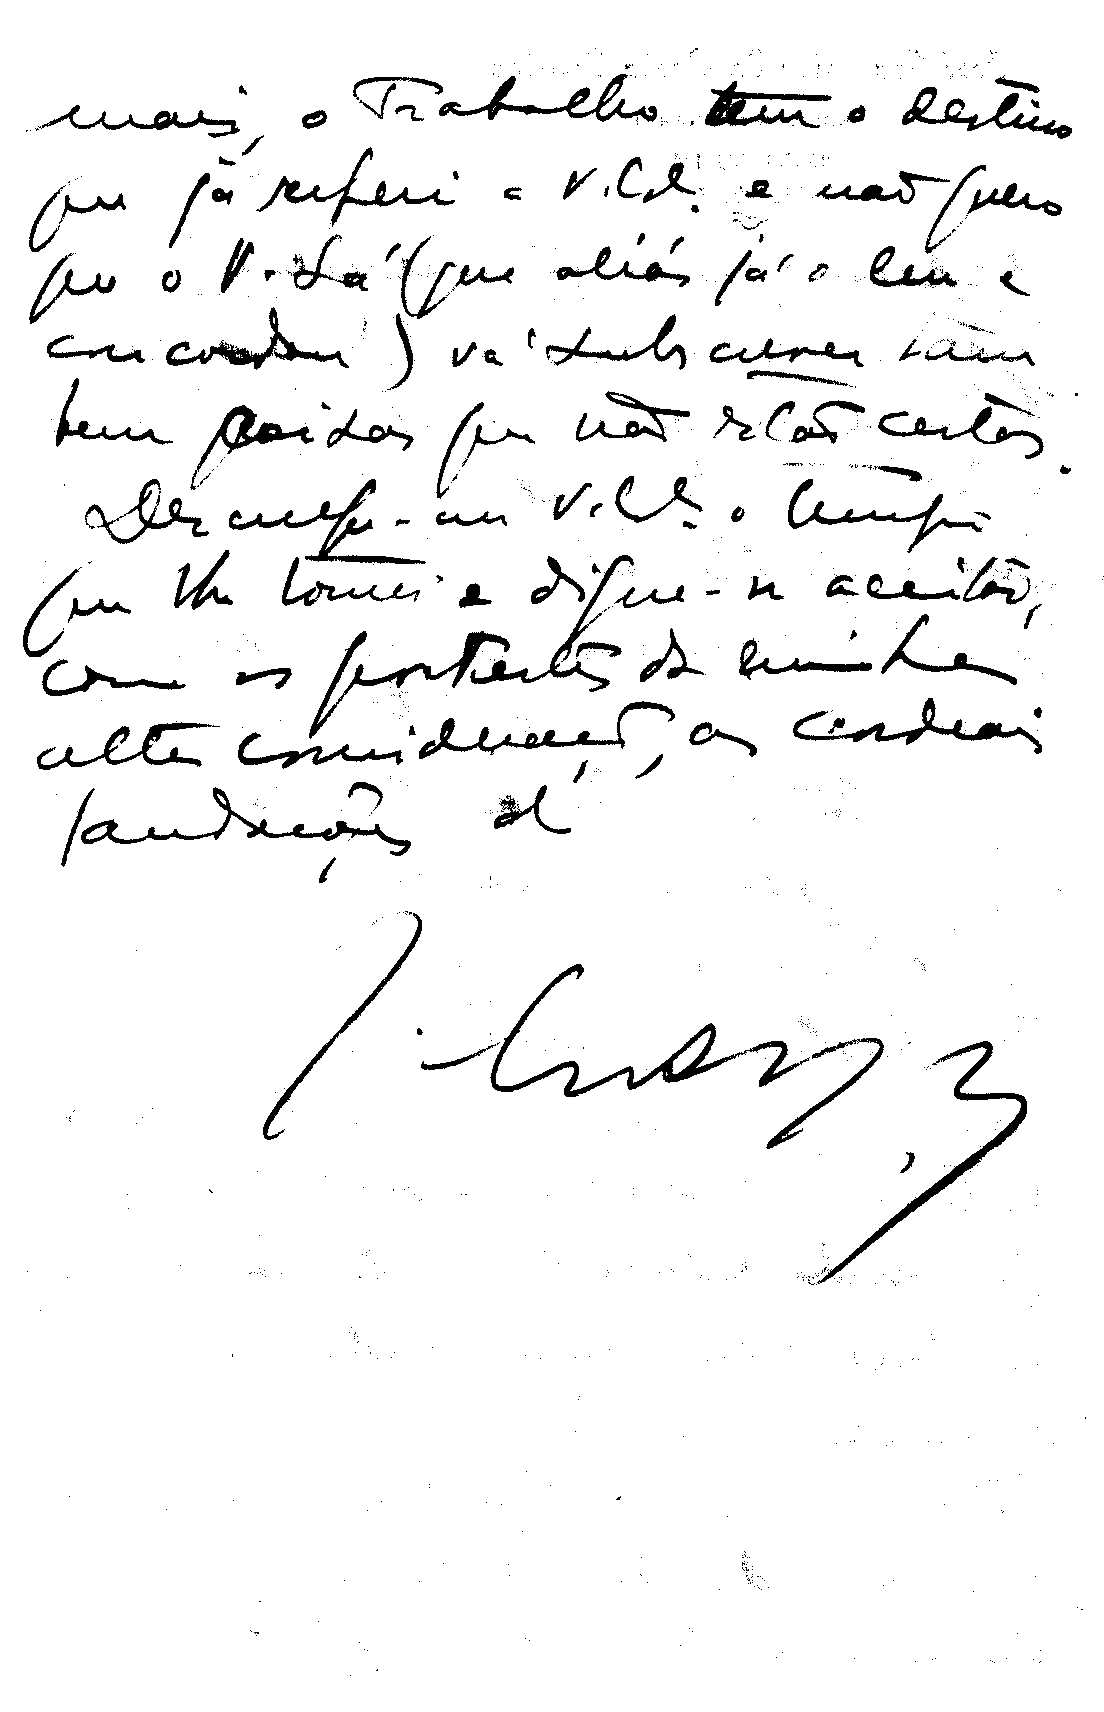 mais, o Trabalho tem o destino
que já referi a V. Ex.ª e não quero
que o V. Sá (que aliás já o leu e
concordou) vá subscrever tam
bem coisas que não estão certas.
Desculpe-me V. Ex.ª o tempo
que lhe tomei e digne-se aceitar,
com os protestos da minha
alta consideração, as cordeais
saudações d